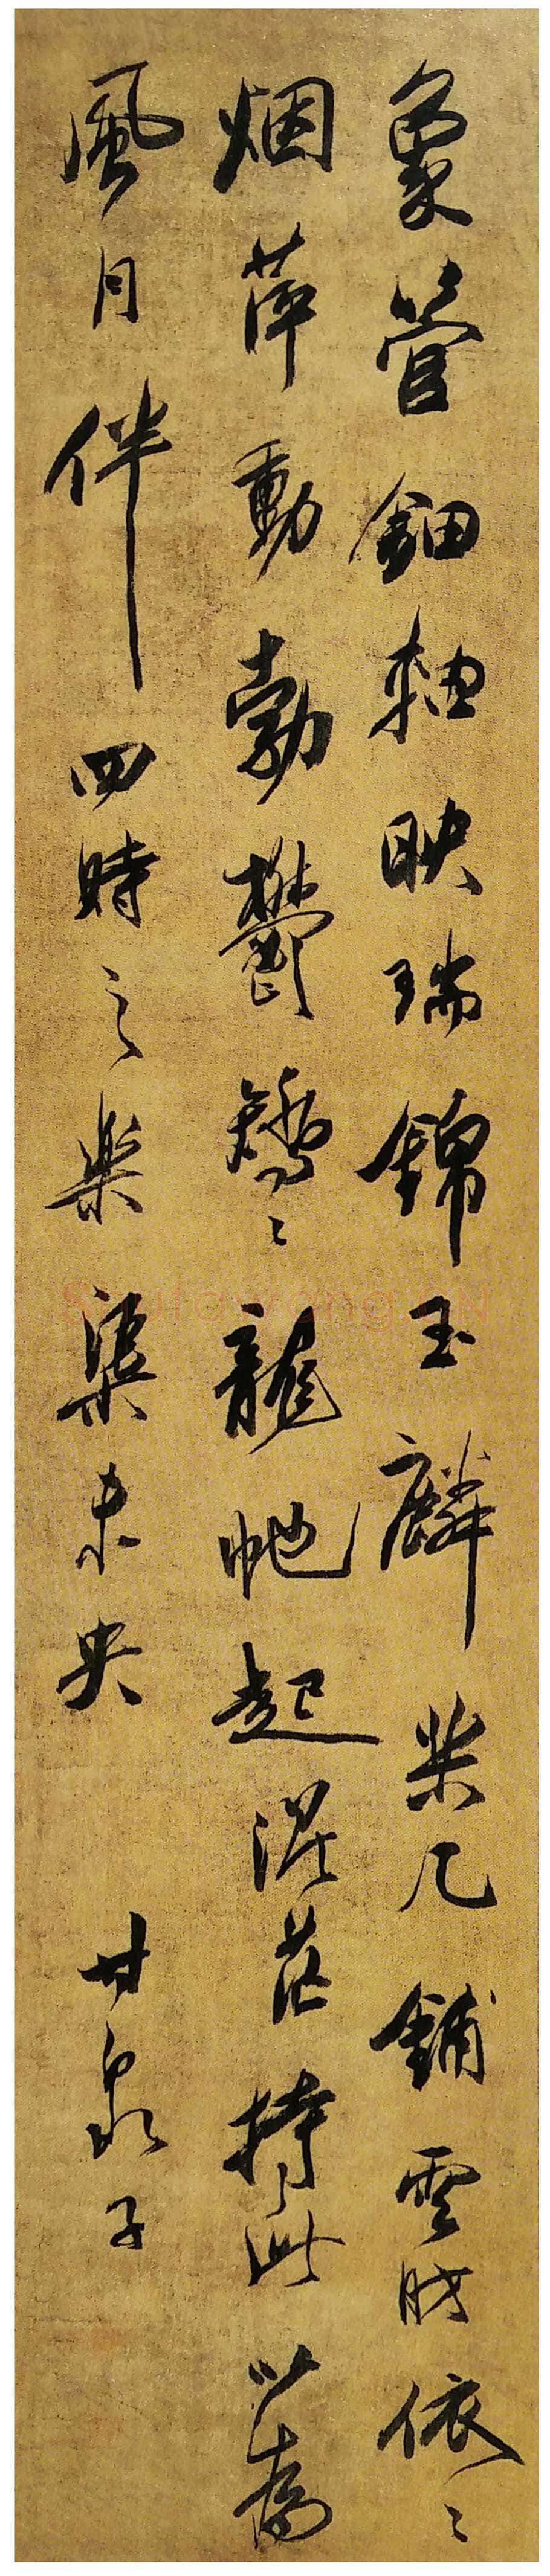 象管鈿軸映瑞錦玉麟棐几鋪雲肪依〻
烟華動勃鬱矯〻龍虵起混茫持此以為
風月伴四時之樂渠未央 甘泉子